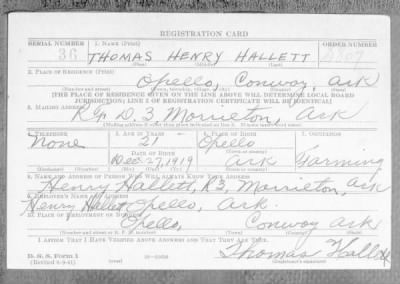 REGISTRATION CARD
SERIAL NUMBER 1. NAME (Print) ORDER NUMBER
36 THOMAS HENRY HALLETT
(First) (Middle) (Last)
2. PLACE OF RESIDENCE (Print)
Opello, Conway, Ark
(Number and street) (Town, township, village, or city) (County) (State)
[THE PLACE OF RESIDENCE GIVEN ON THE LINE ABOVE WILL DETERMINE LOCAL BOARD
JURISDICTION; LINE 2 OF REGISTRATION CERTIFICATE WILL BE IDENTICAL]
3. MAILING ADDRESS
R.F.D. 3, Morrieton, Ark
4. TELEPHONE 5. AGE IN YEARS 6. PLACE OF BIRTH 7. OCCUPATION
None 21 Opello
DATE OF BIRTH (Town or county)
Dec. 27, 1919 Ark Farming
(Exchange) (Number) (Mo.) (Day) (Yr.) (State or country)
8. NAME AND ADDRESS OF PERSON WHO WILL ALWAYS KNOW YOUR ADDRESS
Henry Hallett, R3, Morrieton, Ark
9. EMPLOYER'S NAME AND ADDRESS
Henry Hallett Opello, Ark.
10. PLACE OF EMPLOYMENT OR BUSINESS
Opello, Conway Ark
(Number and street or R. F. D. number) (Town) (County) (State)
I AFFIRM THAT I HAVE VERIFIED ABOVE ANSWERS AND THAT THEY ARE TRUE.
D. S. S. Form 1 Thomas Hallett
(Revised 6-9-41) (Registrant's signature)